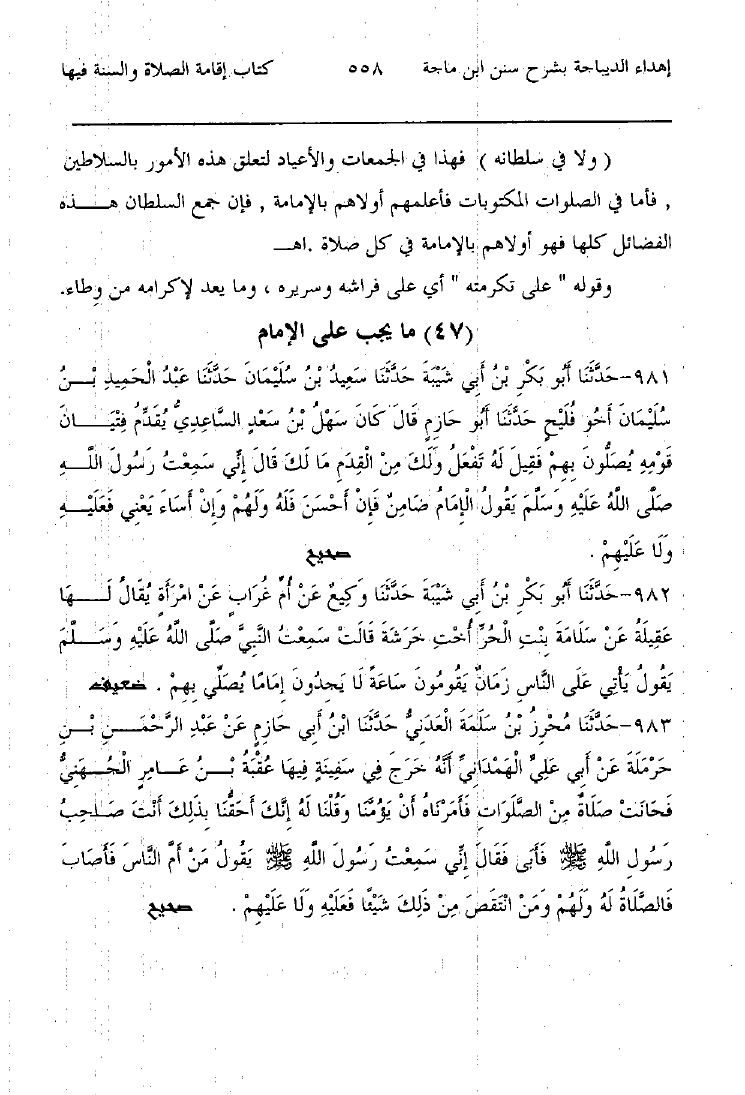 إهداء الديباجة بشرح سنن ابن ماجة ٥٥٨ كتاب إقامة الصلاة والسنة فيها
( ولا في سلطانه ) فهذا في الجمعات والأعياد لتعلق هذه الأمور بالسلاطين
, فأما في الصلوات المكتوبات فأعلمهم أولاهم بالإمامة , فإن جمع السلطان هـــذه
الفضائل كلها فهو أولاهم بالإمامة في كل صلاة .اهـ
وقوله " على تكرمته " أي على فراشه وسريره ، وما يعد لإكرامه من وطاء.
(٤٧) ما يجب على الإمام
٩٨١-حَدَّثَنَا أَبُو بَكْرِ بْنُ أَبِي شَيْبَةَ حَدَّثَنَا سَعِيدُ بْنُ سُلَيْمَانَ حَدَّثَنَا عَبْدُ الْحَمِيدِ بْـــنُ
سُلَيْمَانَ أَخُو فُلَيْحٍ حَدَّثَنَا أَبُو حَازِمٍ قَالَ كَانَ سَهْلُ بْنُ سَعْدٍ السَّاعِدِيُّ يُقَدِّمُ فِتْيَـــانَ
قَوْمِهِ يُصَلُّونَ بِهِمْ فَقِيلَ لَهُ تَفْعَلُ وَلَكَ مِنْ الْقِدَمِ مَا لَكَ قَالَ إِنِّي سَمِعْتُ رَسُولَ اللَّـــهِ
صَلَّى اللَّهُ عَلَيْهِ وَسَلَّمَ يَقُولُ الْإِمَامُ ضَامِنٌ فَإِنْ أَحْسَنَ فَلَهُ وَلَهُمْ وَإِنْ أَسَاءَ يَعْنِي فَعَلَيْـــهِ
وَلَا عَلَيْهِمْ . صحيح
٩٨٢-حَدَّثَنَا أَبُو بَكْرِ بْنُ أَبِي شَيْبَةَ حَدَّثَنَا وَكِيعٌ عَنْ أُمِّ غُرَابٍ عَنْ امْرَأَةٍ يُقَالُ لَـــهَا
عَقِيلَةُ عَنْ سَلَامَةَ بِنْتِ الْحُرِّ أُخْتِ خَرَشَةَ قَالَتْ سَمِعْتُ النَّبِيَّ صَلَّى اللَّهُ عَلَيْهِ وَسَـــلَّمَ
يَقُولُ يَأْتِي عَلَى النَّاسِ زَمَانٌ يَقُومُونَ سَاعَةً لَا يَجِدُونَ إِمَامًا يُصَلِّي بِهِمْ . ضعيف
٩٨٣-حَدَّثَنَا مُحْرِزُ بْنُ سَلَمَةَ الْعَدَنِيُّ حَدَّثَنَا ابْنُ أَبِي حَازِمٍ عَنْ عَبْدِ الرَّحْمَـــنِ بْـــنِ
حَرْمَلَةَ عَنْ أَبِي عَلِيٍّ الْهَمْدَانِيِّ أَنَّهُ خَرَجَ فِي سَفِينَةٍ فِيهَا عُقْبَةُ بْـــنُ عَـــامِرٍ الْجُـــهَنِيُّ
فَحَانَتْ صَلَاةٌ مِنْ الصَّلَوَاتِ فَأَمَرْنَاهُ أَنْ يَؤُمَّنَا وَقُلْنَا لَهُ إِنَّكَ أَحَقُّنَا بِذَلِكَ أَنْتَ صَـــاحِبُ
رَسُولِ اللَّهِ ﷺ فَأَبَى فَقَالَ إِنِّي سَمِعْتُ رَسُولَ اللَّهِ ﷺ يَقُولُ مَنْ أَمَّ النَّاسَ فَأَصَابَ
فَالصَّلَاةُ لَهُ وَلَهُمْ وَمَنْ انْتَقَصَ مِنْ ذَلِكَ شَيْئًا فَعَلَيْهِ وَلَا عَلَيْهِمْ . صحيح